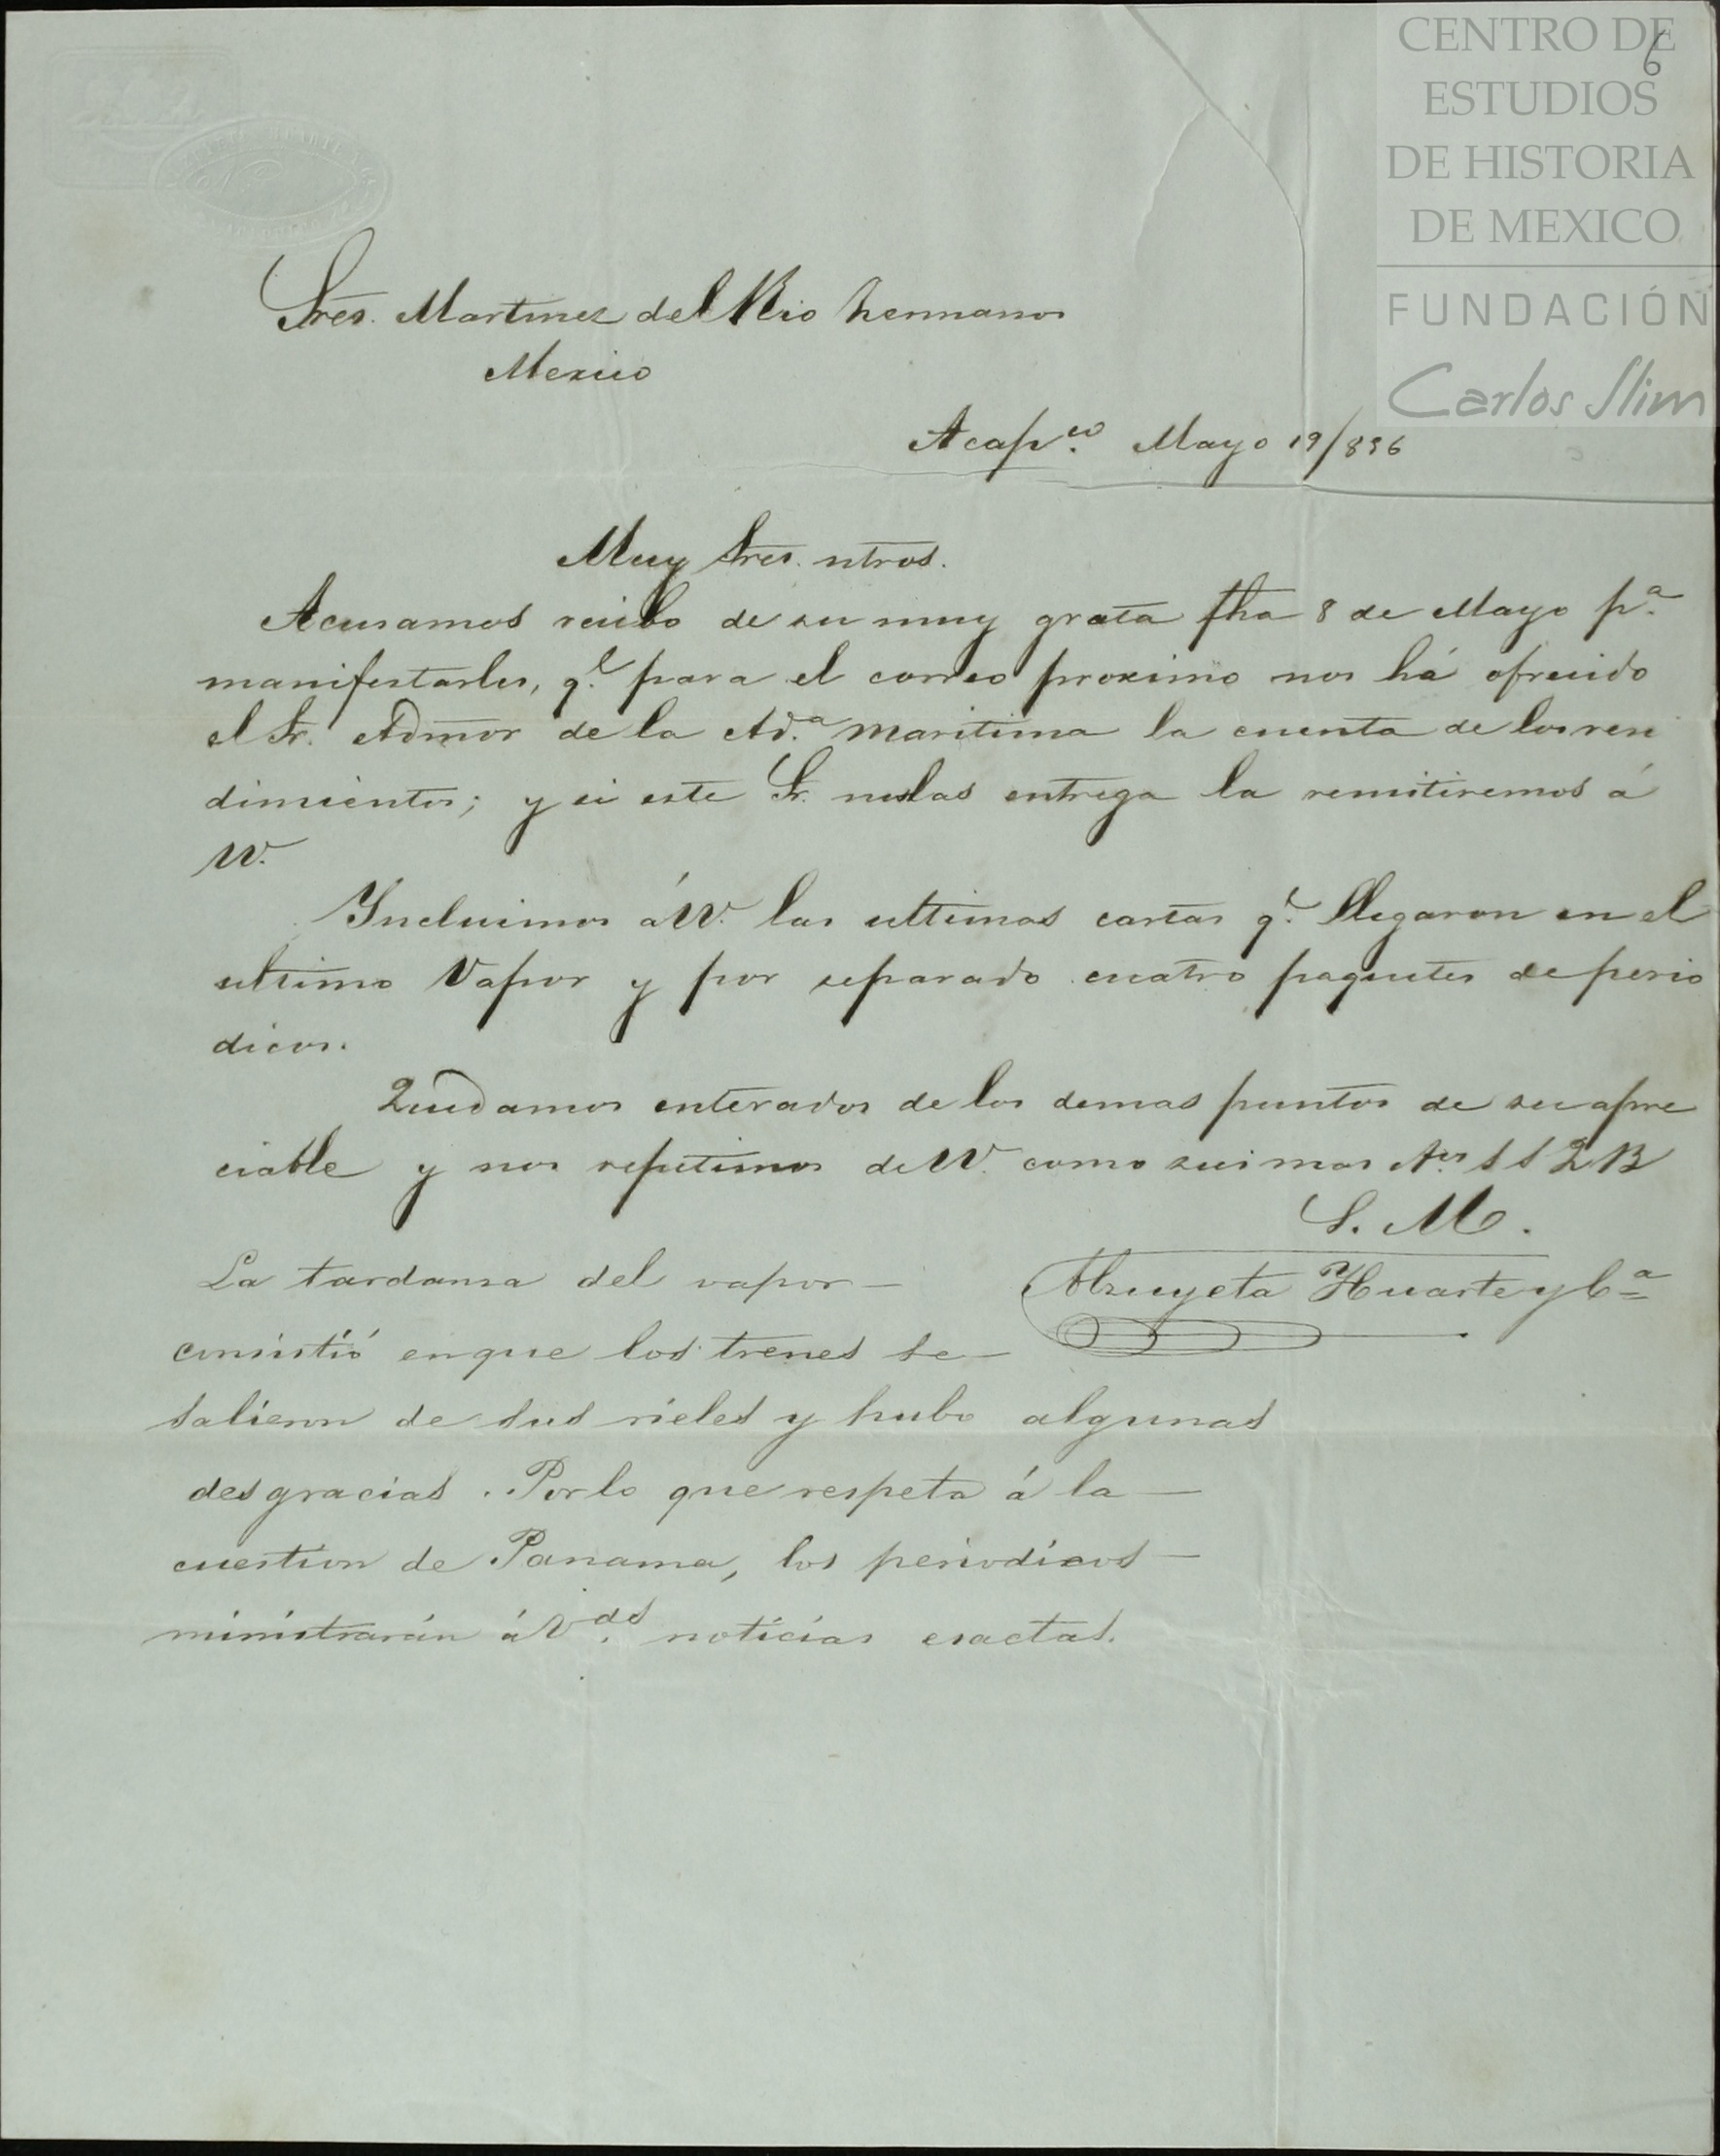 CENTRO DE
ESTUDIOS
DE HISTORIA
DE MEXICO
FUNDACIÓN
Carlos Slim
6
Sres. Martinez del Rio hermanos
Mexico
Acapco. Mayo 19/856
Muy Sres. ntros.
Acusamos recibo de su muy grata fha 8 de Mayo pa.
manifestarles, qe. para el correo proximo nos há ofrecido
el Sr. Admor de la Ada. maritima la cuenta de los ren
dimientos; y si este Sr. nos las entrega la remitiremos á
VV.
Yncluimos á VV. las ultimas cartas qe. llegaron en el
ultimo Vapor y por separado cuatro paquetes de perio
dicos.
Quedamos enterados de los demas puntos de su apre
ciable y nos repetimos de VV. como suis mos Aos. S S Q B
S. M.
Alzuyeta Huarte y Ca
La tardansa del vapor —
consistió en que los trenes se —
salieron de sus rieles y hubo algunas
desgracias. Por lo que respeta á la —
cuestion de Panama, los periodicos —
ministrarán á Vds. noticias esactas.